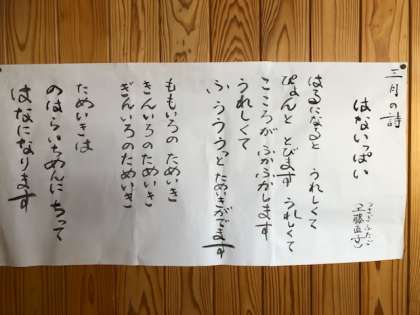 三月の詩
はないっぱい
つきとしふたご
(工藤直子)
はるになると うれしくて
ぴょんと とびます うれしくて
こころが ふかふかします
うれしくて
ふ うううっと ためいきがでます
ももいろの ためいき
きんいろの ためいき
ぎんいろのためいき
ためいきは
のはらいちめんに ちって
はなになります